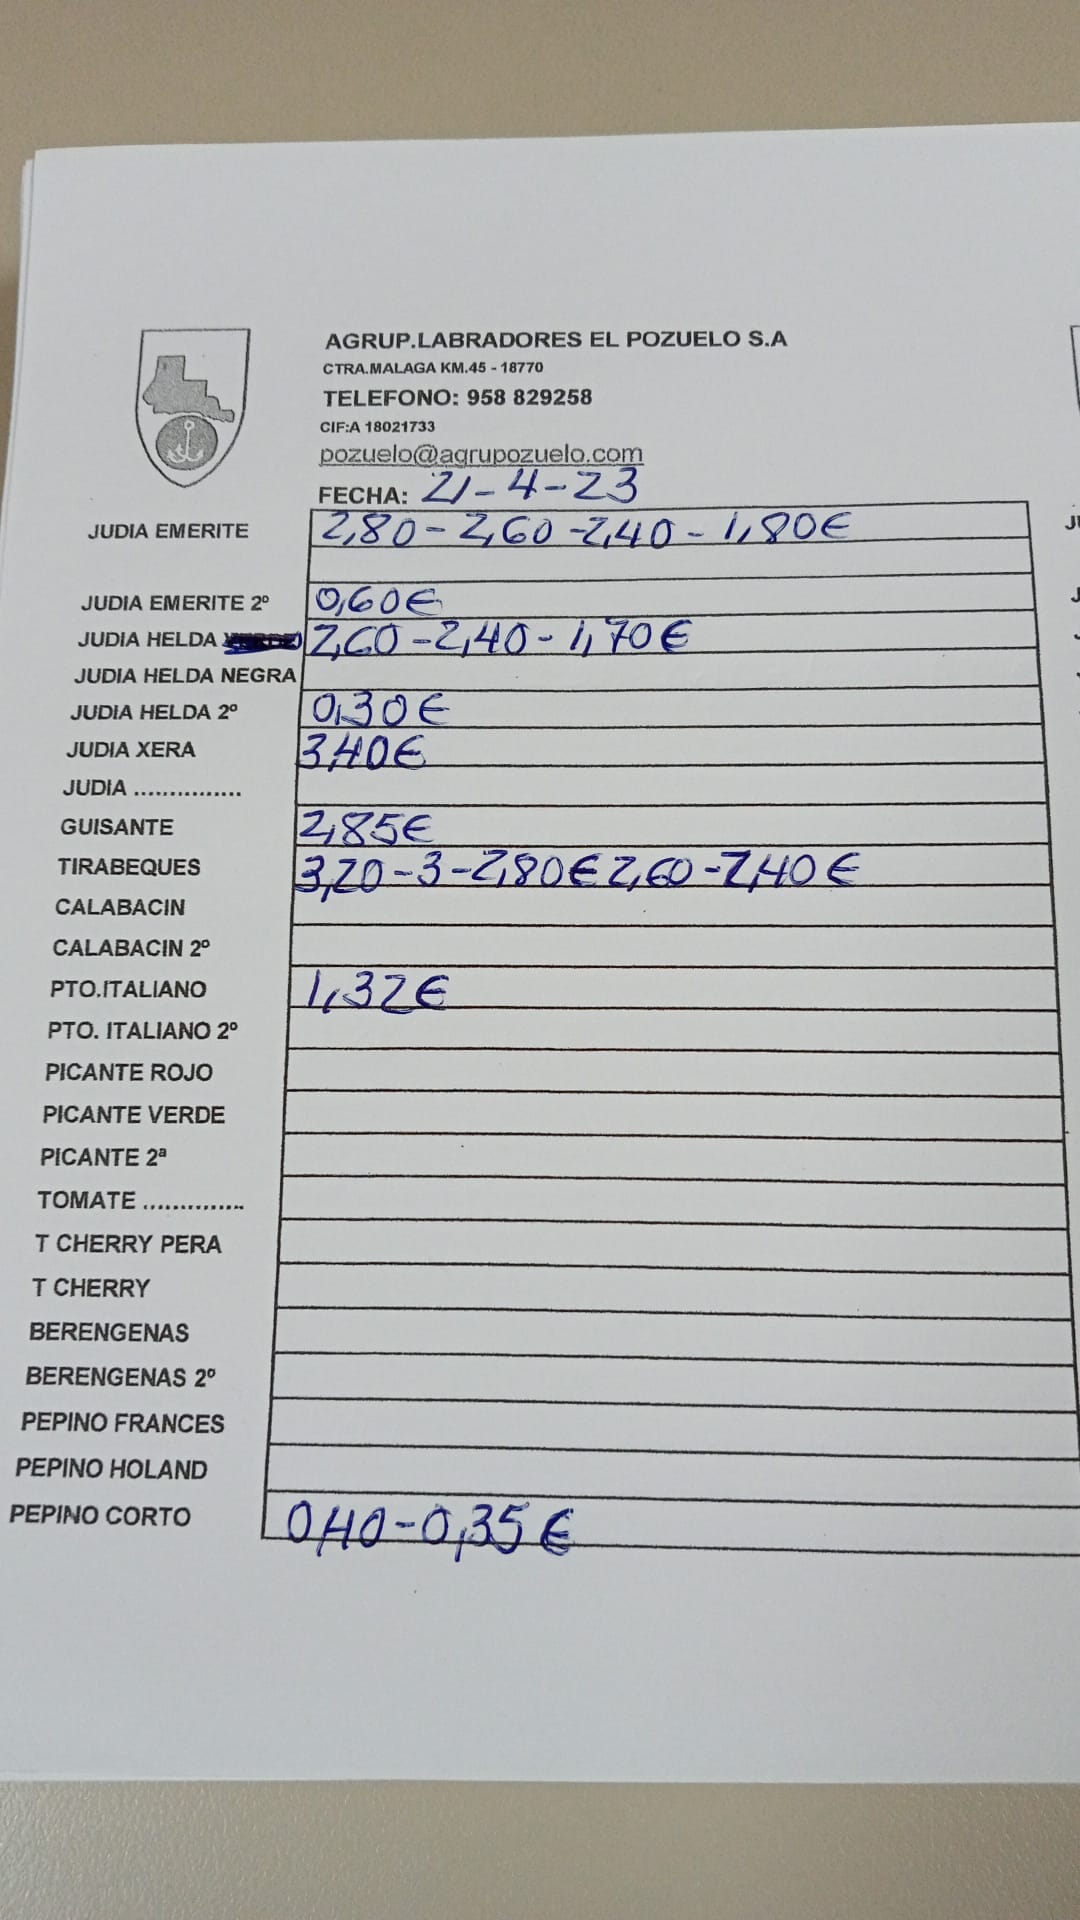 AGRUP.LABRADORES EL POZUELO S.A
CTRA.MALAGA KM.45 - 18770
TELEFONO: 958 829258
CIF:A 18021733
pozuelo@agrupozuelo.com
FECHA: 21-4-23
JUDIA EMERITE 2,80-2,60-2,40-1,80€
JUDIA EMERITE 2º 0,60€
JUDIA HELDA 2,60-2,40-1,70€
JUDIA HELDA NEGRA
JUDIA HELDA 2º 0,30€
JUDIA XERA 3,40€
JUDIA ...............
GUISANTE 2,85€
TIRABEQUES 3,20-3-2,80€ 2,60-2,40€
CALABACIN
CALABACIN 2º
PTO.ITALIANO 1,32€
PTO. ITALIANO 2º
PICANTE ROJO
PICANTE VERDE
PICANTE 2ª
TOMATE ..............
T CHERRY PERA
T CHERRY
BERENGENAS
BERENGENAS 2º
PEPINO FRANCES
PEPINO HOLAND
PEPINO CORTO 0,40-0,35€